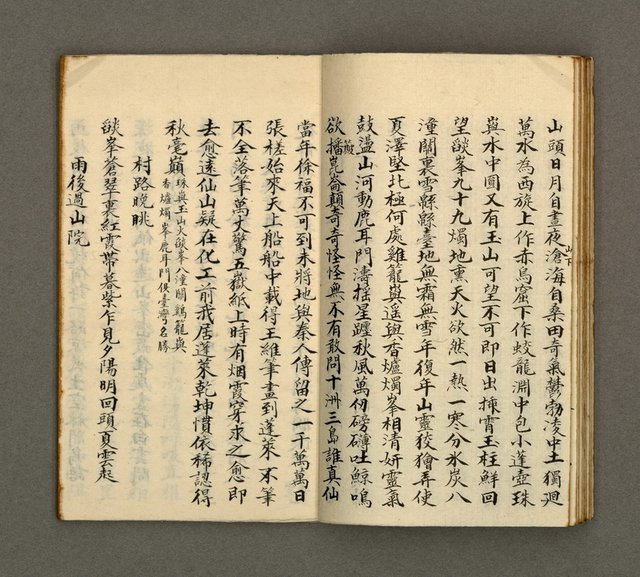 山頭日月自晝夜山下滄海自桑田奇氣鬱勃淩中土獨迴
萬水為西旋上作赤烏窟下作蛟龍淵中包小蓬壺珠
與水中圓又有玉山可望不可即日出揀霄玉柱鮮回
望燄峯九十九燭地熏天火欲然一熱一寒分氷炭八
潼關裏雪緜緜臺地無霜無雪年復年山靈狡獪弄使
夏澤堅北極何處雞籠與遥與香爐燭峯相清妍靈氣
鼓盪山河動鹿耳門濤搖星躔秋風萬仞磅礡吐鯨鳴
欲播簸崑崙顛奇奇怪怪無不有敢問十洲三島誰真仙
當年徐福不可到未將地與秦人傳留之一千萬萬日
張槎始來天上船船中載得王維筆畫到蓬萊不筆
不全落筆萬丈驚五嶽紙上時有烟霞穿求之愈即
去愈遠仙山疑在化工前我居蓬萊乾坤慣依稀認得
秋毫巔
珠與玉山火燄峯八潼關鷄籠與
香爐燭峯鹿耳門俱臺灣名勝
村路晚眺
燄峯蒼翠裏紅霞帶暮紫乍見夕陽明回頭夏雲起
雨後過山院